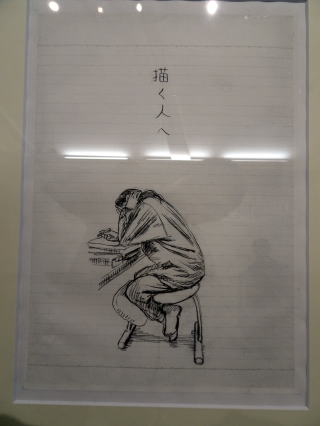 描く人へ